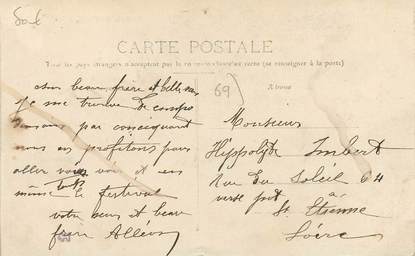 CARTE POSTALE
Tous les pays étrangers n'acceptent pas la correspondance au recto (se renseigner à la poste)
69
Adresse
cher beau frère et belle sœur
je me trouve de
par conséquent
nous en profitons pour
aller vous voir et en
même le festival
votre sœur et beau
frère Alléon
Monsieur
Hippolyte Imbert
rue du Soleil 64
à
St Etienne
Loire